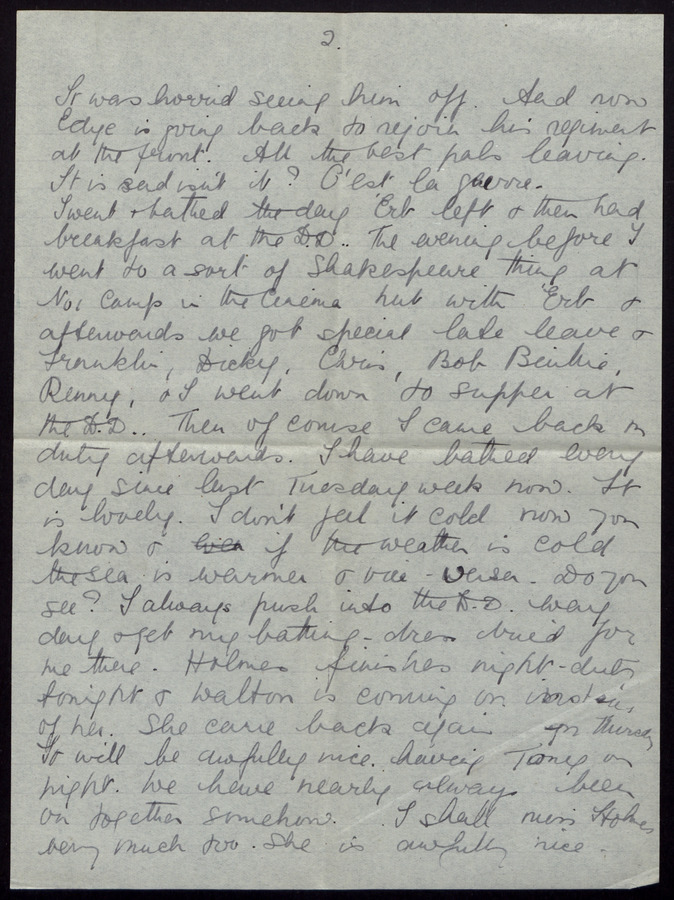 2.
It was horrid seeing him off. And now
Edye is going back to rejoin his regiment
at the front. All the best pals leaving.
It is sad isn't it? C'est la guerre.
I went & bathed the day 'Erb left & then had
breakfast at the D.D.. The evening before I
went to a sort of Shakespeare thing at
No1 Camp in the Cinema hut with 'Erb &
afterwards we got special late leave &
Franklin, Dicky, Chris, Bob
Renny, & I went down to supper at
the D.D.. Then of course I came back on
duty afterwards. I have bathed every
day since last Tuesday week now. It
is lovely. I don't feel it cold now you
know & if the weather is cold
the sea is warmer & vice-versa. Do you
see? I always push into the D.D. every
day & get my bathing-dress dried for
me there. Holmes finishes night-duty
tonight & Walton is coming on instead
of her. She came back again on Thursday
It will be awfully nice having Tony on
night. We have nearly always been
on together somehow. I shall miss Holmes
very much too. She is awfully nice.